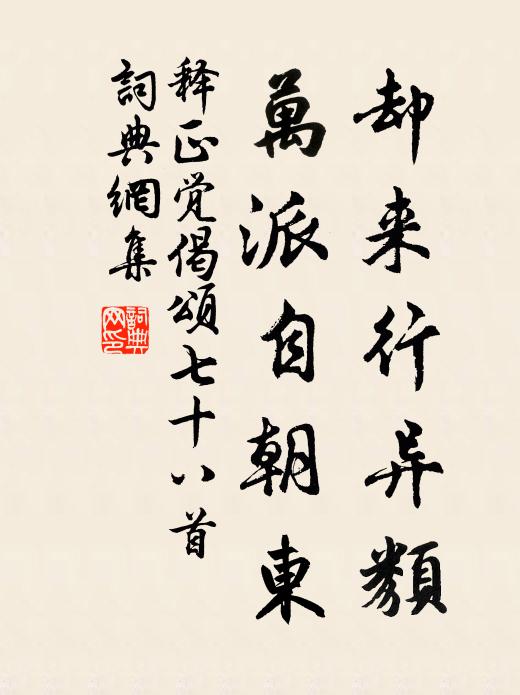 却来行异類
萬派自朝東
释正觉偈頌七十八首
詞典網集
詞典网印